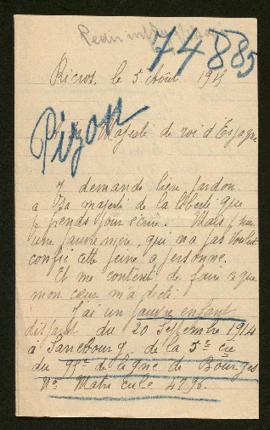 74885
Ricros, le 5 Août 1915
Pizon
Majesté de roi d'Espagne
Je demande bien pardon
à Sa majesté de la liberté que
je prends pour écrire. Mais
une pauvre mère, qui n'a pas voulut
confié cette peine à personne.
Et me content de faire ce que
mon cœur m'a dicté.
J'ai un pauvre enfant
disparut du 20 septembre 1914
à Sarrebourg, de la 5e Cie
du 95e de ligne de Bourges
No Matricule 4896.